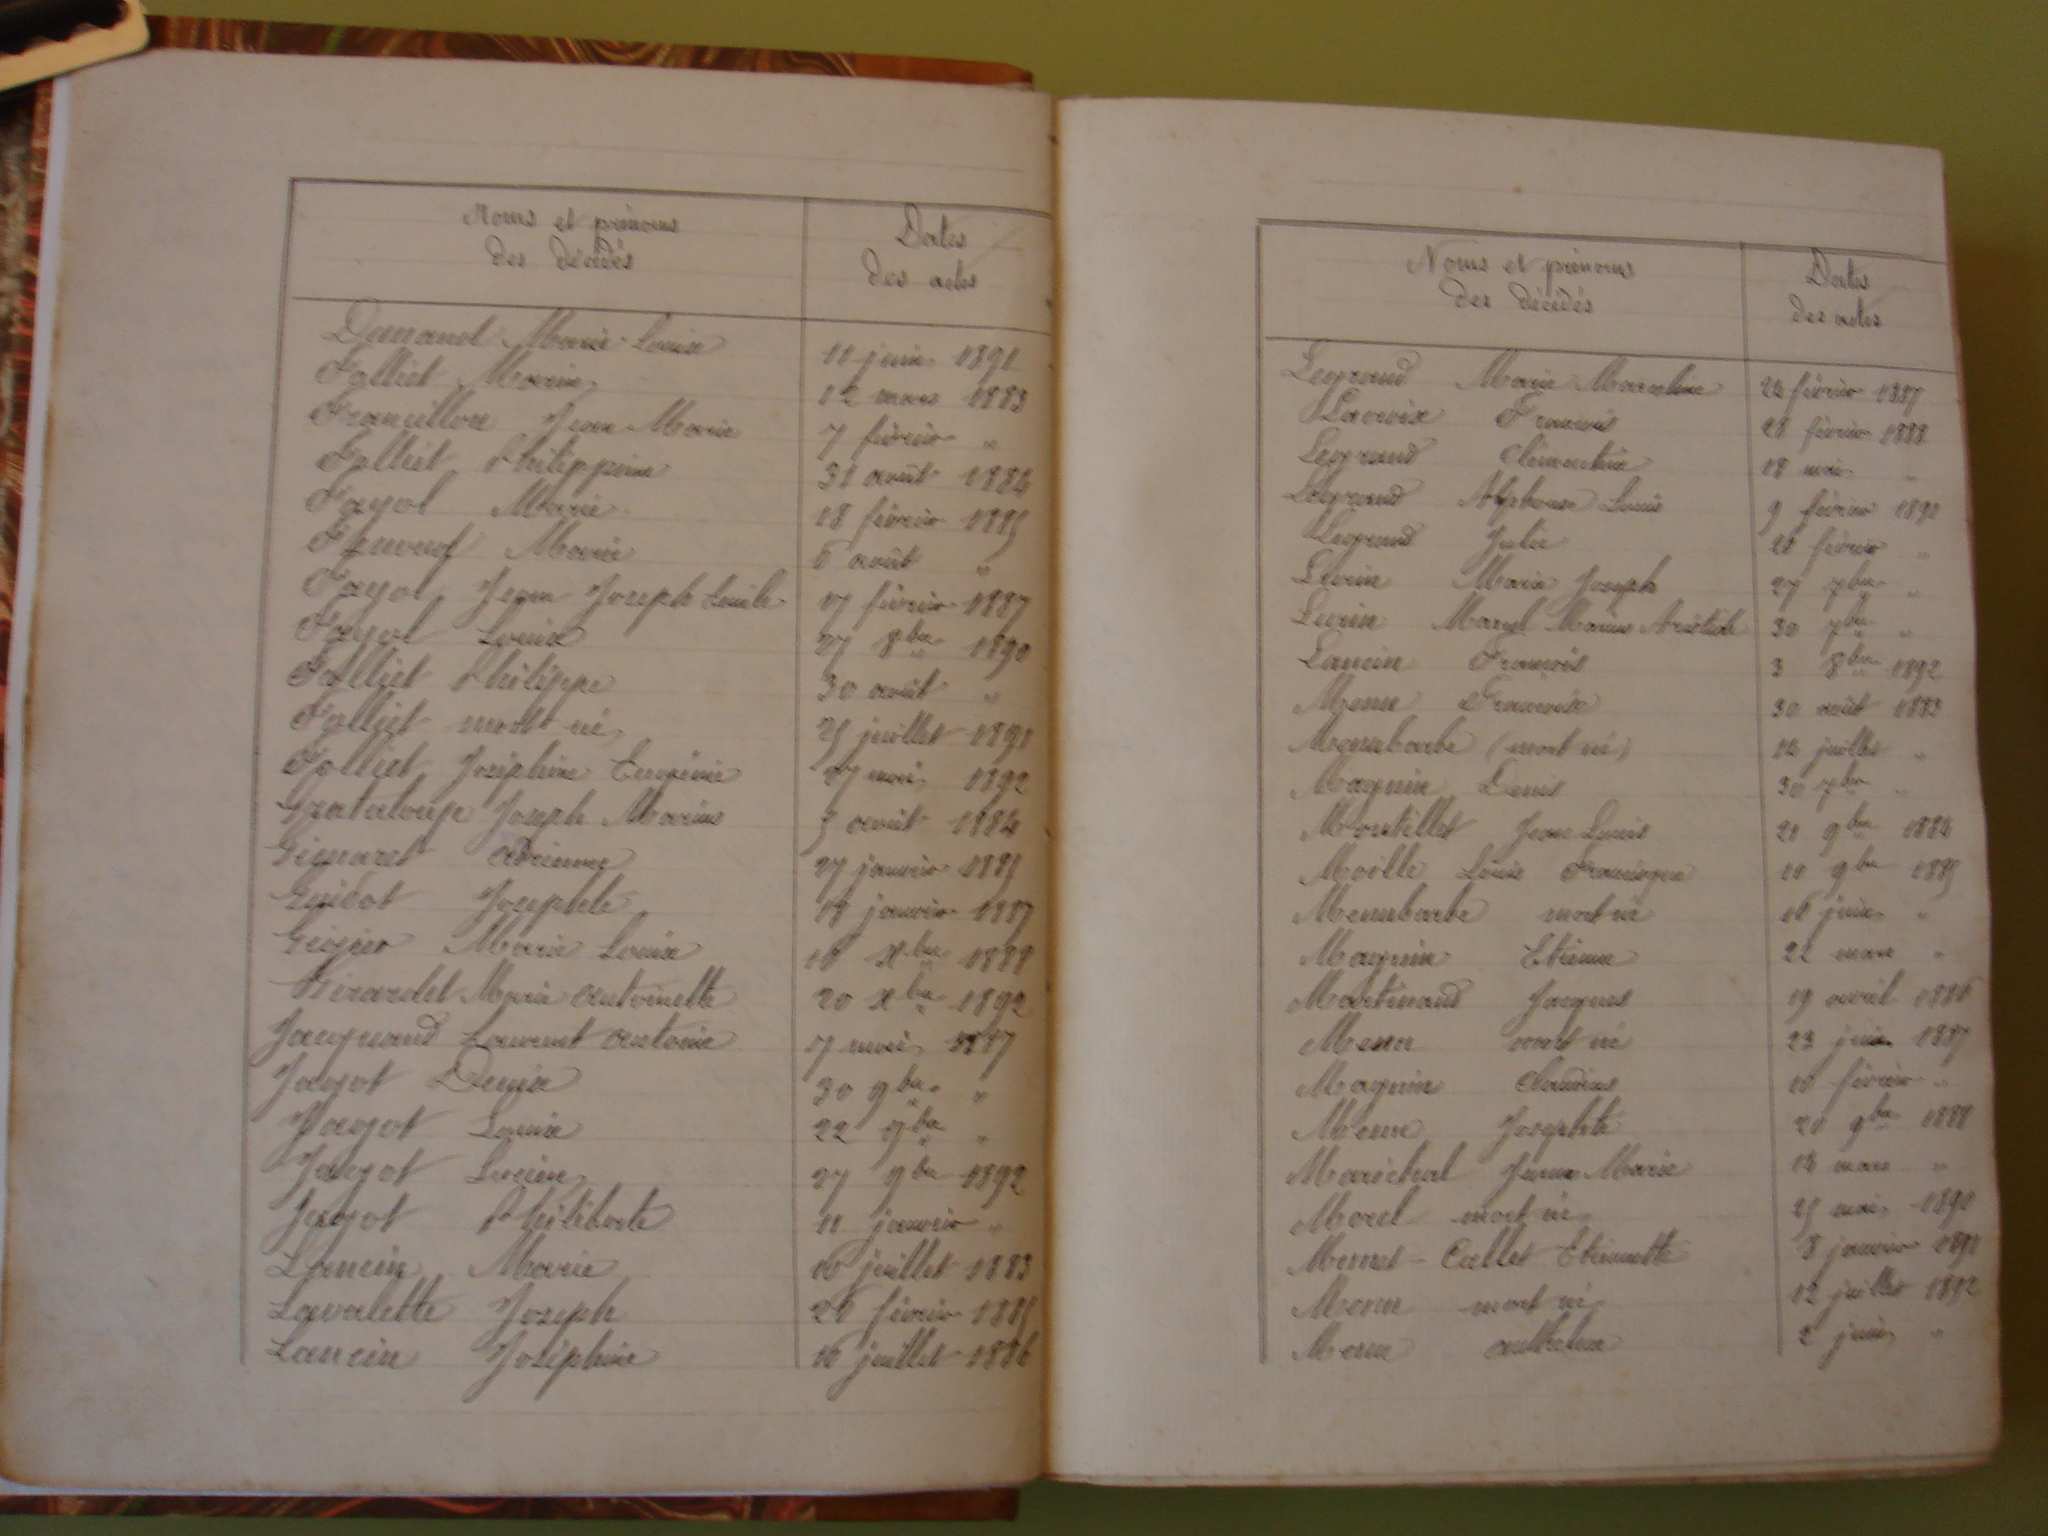 Noms et prénoms
des décédés
Dates
des actes
Dumand Marie Louise 11 juin 1891
Falliet Marie 12 mars 1883
Francillon Jean Marie 7 février "
Falliet Philippine 31 août 1884
Fayol Marie 18 février 1885
Marie 6 août "
Fayol Jean Joseph Emile 17 février 1887
Fayol Louise 27 8bre 1890
Falliet Philippe 30 août "
Falliet mort né 25 juillet 1891
Folliet Joséphine Eugénie 27 mai 1892
Grataloup Joseph Marius 3 août 1884
Adrienne 27 janvier 1885
Guidot Josephte 18 janvier 1887
Marie Louise 16 Xbre 1888
Girardet Marie Antoinette 20 Xbre 1892
Jacquand Laurent Antoine 17 mai 1887
Jayot Denise 30 9bre "
Jayot Louise 22 9bre "
Jayot Lucien 27 9bre 1892
Jayot Philiberte 11 janvier "
Lancin Marie 16 juillet 1883
Lavalette Joseph 26 février 1885
Lancin Joséphine 16 juillet 1886
Noms et prénoms
des décédés
Dates
des actes
Legrand Marie Marceline 24 février 1887
Lacroix François 28 février 1888
Legrand Clémentine 18 mai "
Legrand Alphonse Louis 9 février 1890
Legrand Julie 28 février "
Livrin Marie Joseph 27 7bre "
Livrin Marcel Marius Aristide 30 7bre "
Lancin François 3 8bre 1892
Menu Françoise 30 août 1883
Menubarbe (mort né) 14 juillet "
Magnin Denis 30 7bre "
Montillet Jean Louis 21 9bre 1884
Moëlle Louis François 10 9bre 1885
Menubarbe mort né 16 juin "
Magnin Etienne 22 mars "
Martinand Jacques 19 avril 1886
Menu mort né 23 juin 1887
Magnin Claudius 10 février "
Menu Josephte 20 9bre 1888
Maréchal Jeanne Marie 14 mars "
Morel mort né 25 mai 1890
Mermet-Callet Etiennette 8 janvier 1891
Menu mort né 12 juillet 1892
Menu Anthelme 2 juin "